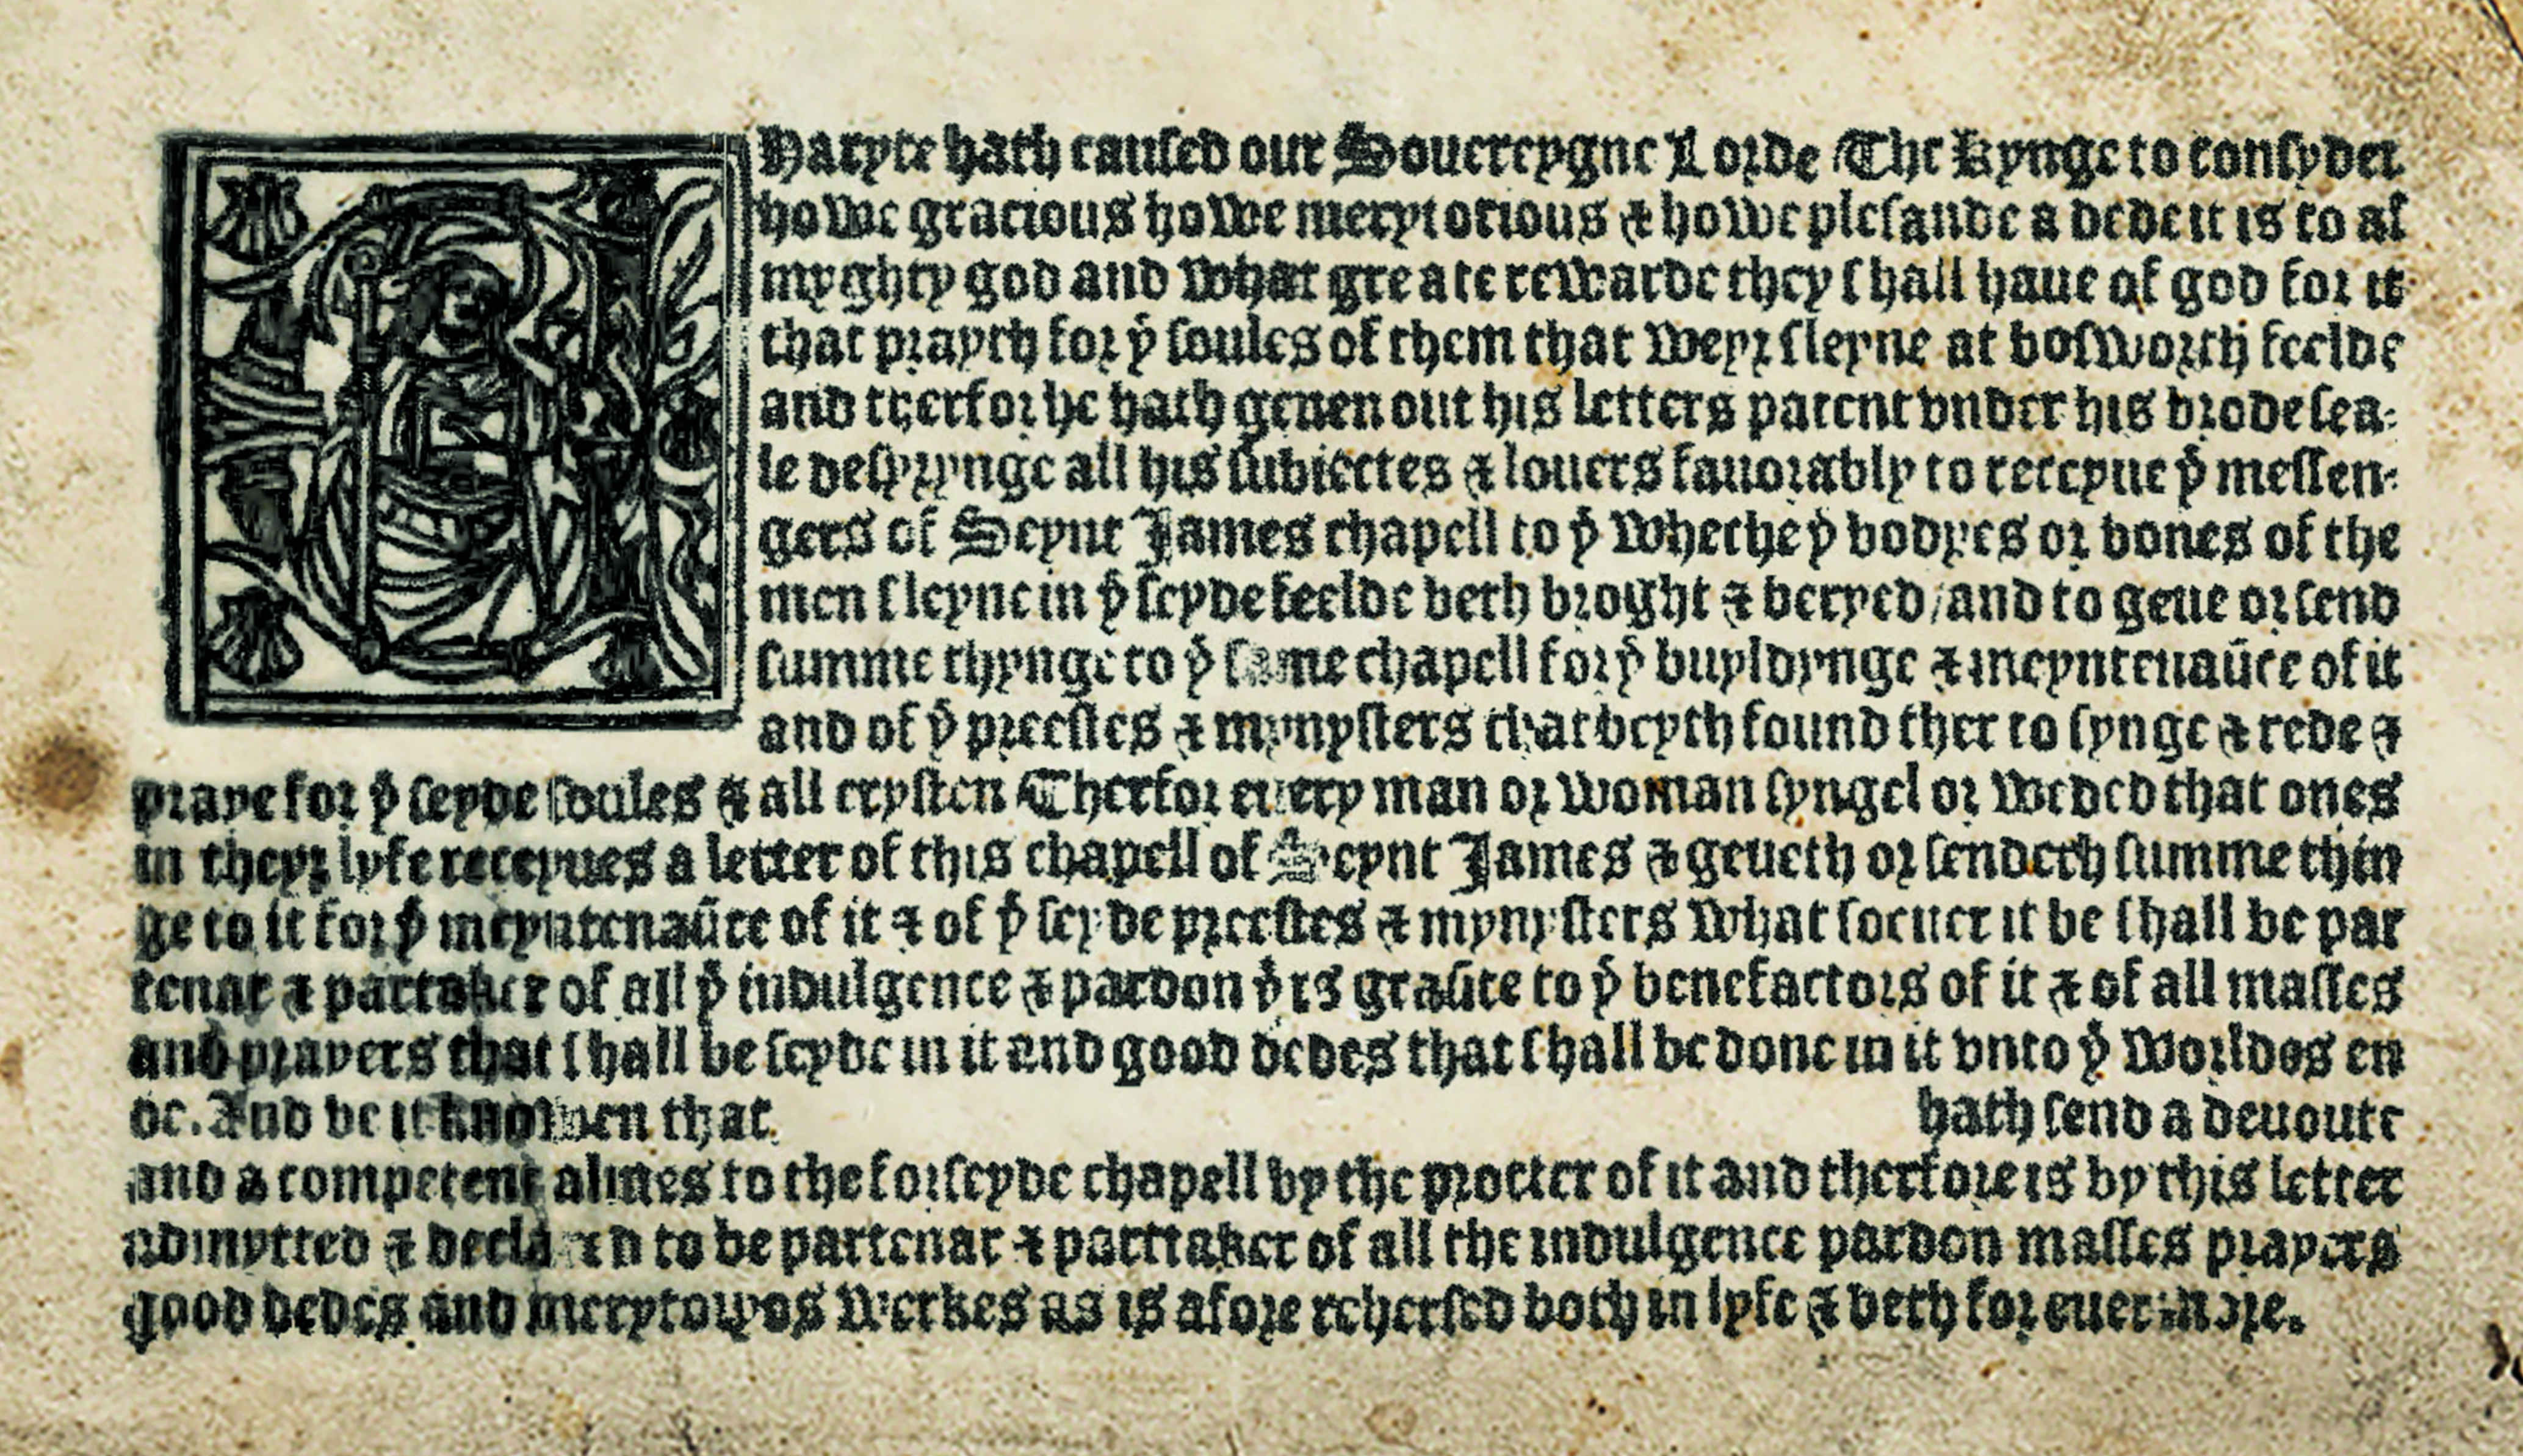 Haryte hath caused our Souereygne Lorde The kynge to consyder
howe gracious howe merytorious ⁊ howe plesande a dede it is to al
myghty god and what greate rewarde they shall haue of god for it
that prayth for yͤ soules of them that weyr sleyne at bosworth feelde
and therfor he hath geuen out his letters patent vnder his brode sea-
le desyrynge all his subiectes ⁊ louers fauorably to receyue yͤ messen-
gers of Seynt James chapell to yͤ whethe yͤ bodyes or bones of the
men sleyne in yͤ seyde feelde beth broght ⁊ beryed/and to geue or send
summe thynge to yͤ same chapell for yͤ buyldynge ⁊ meyntenaūce of it
and of yͤ preestes ⁊ mynysters that beyth found ther to synge ⁊ rede ⁊
praye for yͤ seyde soules ⁊ all crysten Therfor euery man or woman syngel or weded that ones
in theyr lyfe receyues a letter of this chapell of Seynt James ⁊ geueth or sendeth summe thin
ge to it for yͤ meyntenaūce of it ⁊ of yͤ seyde preestes ⁊ mynysters what soeuer it be shall be par
tenar ⁊ parttaker of all yͤ indulgence ⁊ pardon yͭ is graūte to yͤ benefactors of it ⁊ of all masses
and prayers that shall be seyde in it and good dedes that shall be done in it vnto yͤ worldes en
de. And be it knowen that hath send a deuoute
and a competent almes to the forseyde chapell by the procter of it and therfore is by this letter
admytted ⁊ declared to be partenar ⁊ parttaker of all the indulgence pardon masses prayers
good dedes and merytowos werkes as is afore rehersed both in lyfe ⁊ deth for euer more.